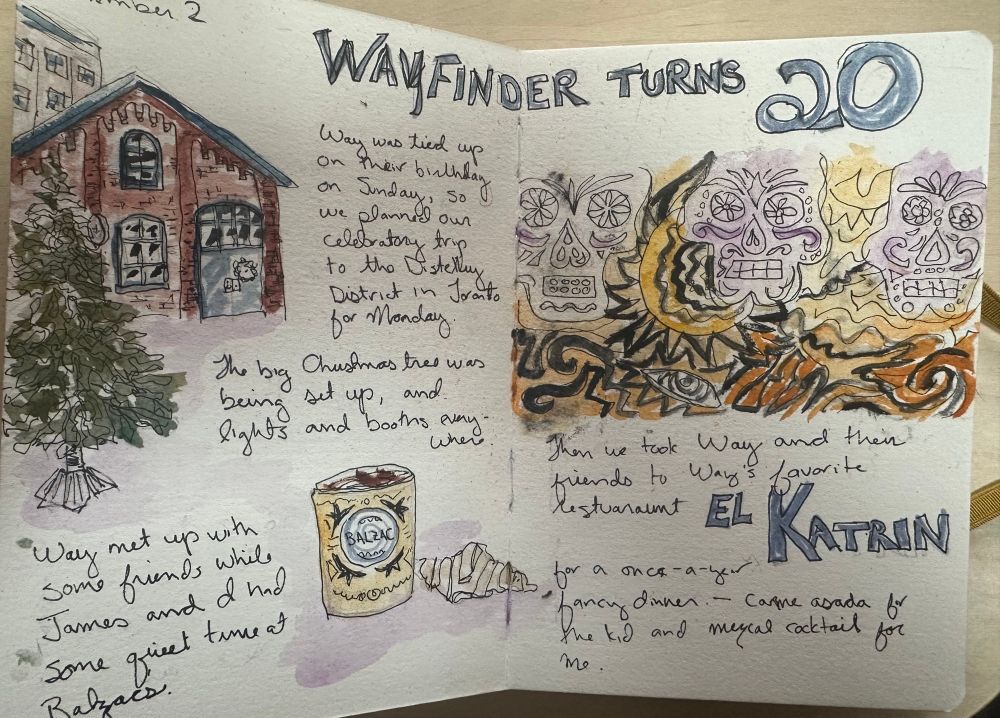 ember 2
WAYFINDER TURNS 20
Way was tied up
on their birthday
on Sunday, so
we planned our
celebratory trip
to the Distillery
District in Toronto
for Monday.
The big Christmas tree was
being set up, and
lights and booths every-
where.
Way met up with
some friends while
James and I had
some quiet time at
Balzacs.
BALZAC
Then we took Way and their
friends to Way's favorite
restuaraunt EL KATRIN
for a once-a-year
fancy dinner. — Carne asada for
the kid and mezcal cocktail for
me.